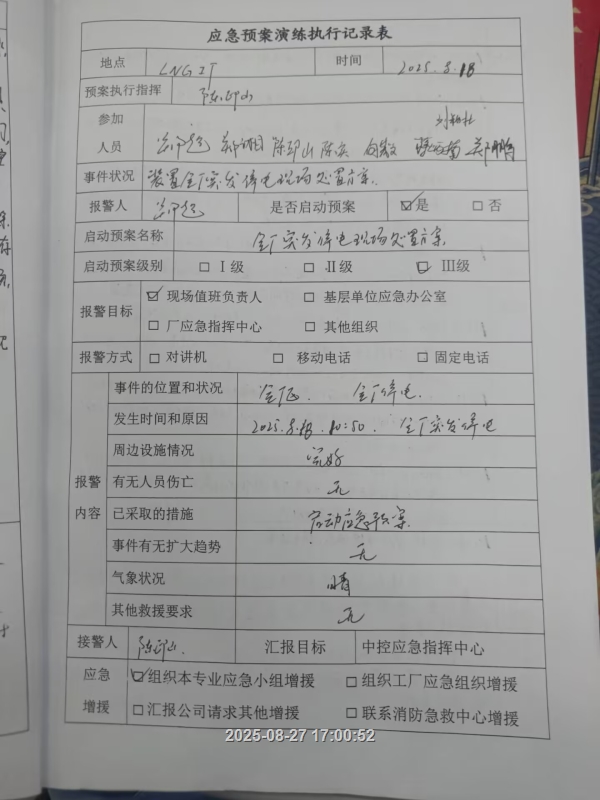 应急预案演练执行记录表
地点 LNG 2T 时间 2025.8.18
预案执行指挥 陈邱山
参加
人员 陈邱山
事件状况 装置全厂突发停电现场处置方案.
报警人 是否启动预案 ☑是 □否
启动预案名称 全厂突发停电现场处置方案.
启动预案级别 □Ⅰ级 □Ⅱ级 ☑Ⅲ级
报警目标 ☑现场值班负责人 □基层单位应急办公室
□厂应急指挥中心 □其他组织
报警方式 □对讲机 □移动电话 □固定电话
报警
内容
事件的位置和状况 全厂停电.
发生时间和原因 2025.8.18. 10:50. 全厂突发停电
周边设施情况 完好
有无人员伤亡 无
已采取的措施 启动应急预案.
事件有无扩大趋势 无
气象状况 晴
其他救援要求 无
接警人 陈邱山. 汇报目标 中控应急指挥中心
应急
增援
☑组织本专业应急小组增援 □组织工厂应急组织增援
□汇报公司请求其他增援 □联系消防急救中心增援
2025-08-27 17:00:52